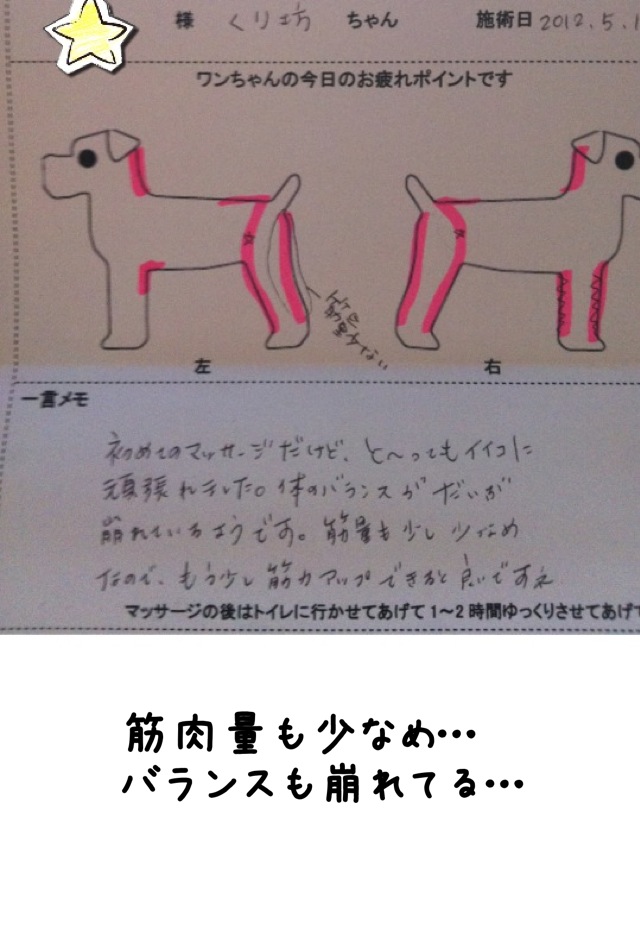 様 くり坊 ちゃん 施術日 2012.5.1
ワンちゃんの今日のお疲れポイントです
筋肉量少ない
左
右
一言メモ
初めてのマッサージだけど、と〜ってもイイコに
頑張れました。体のバランスがだいぶ
崩れているようです。筋量も少し少なめ
なので、もう少し筋力アップできると良いですネ
マッサージの後はトイレに行かせてあげて1〜2時間ゆっくりさせてあげて
筋肉量も少なめ…
バランスも崩れてる…